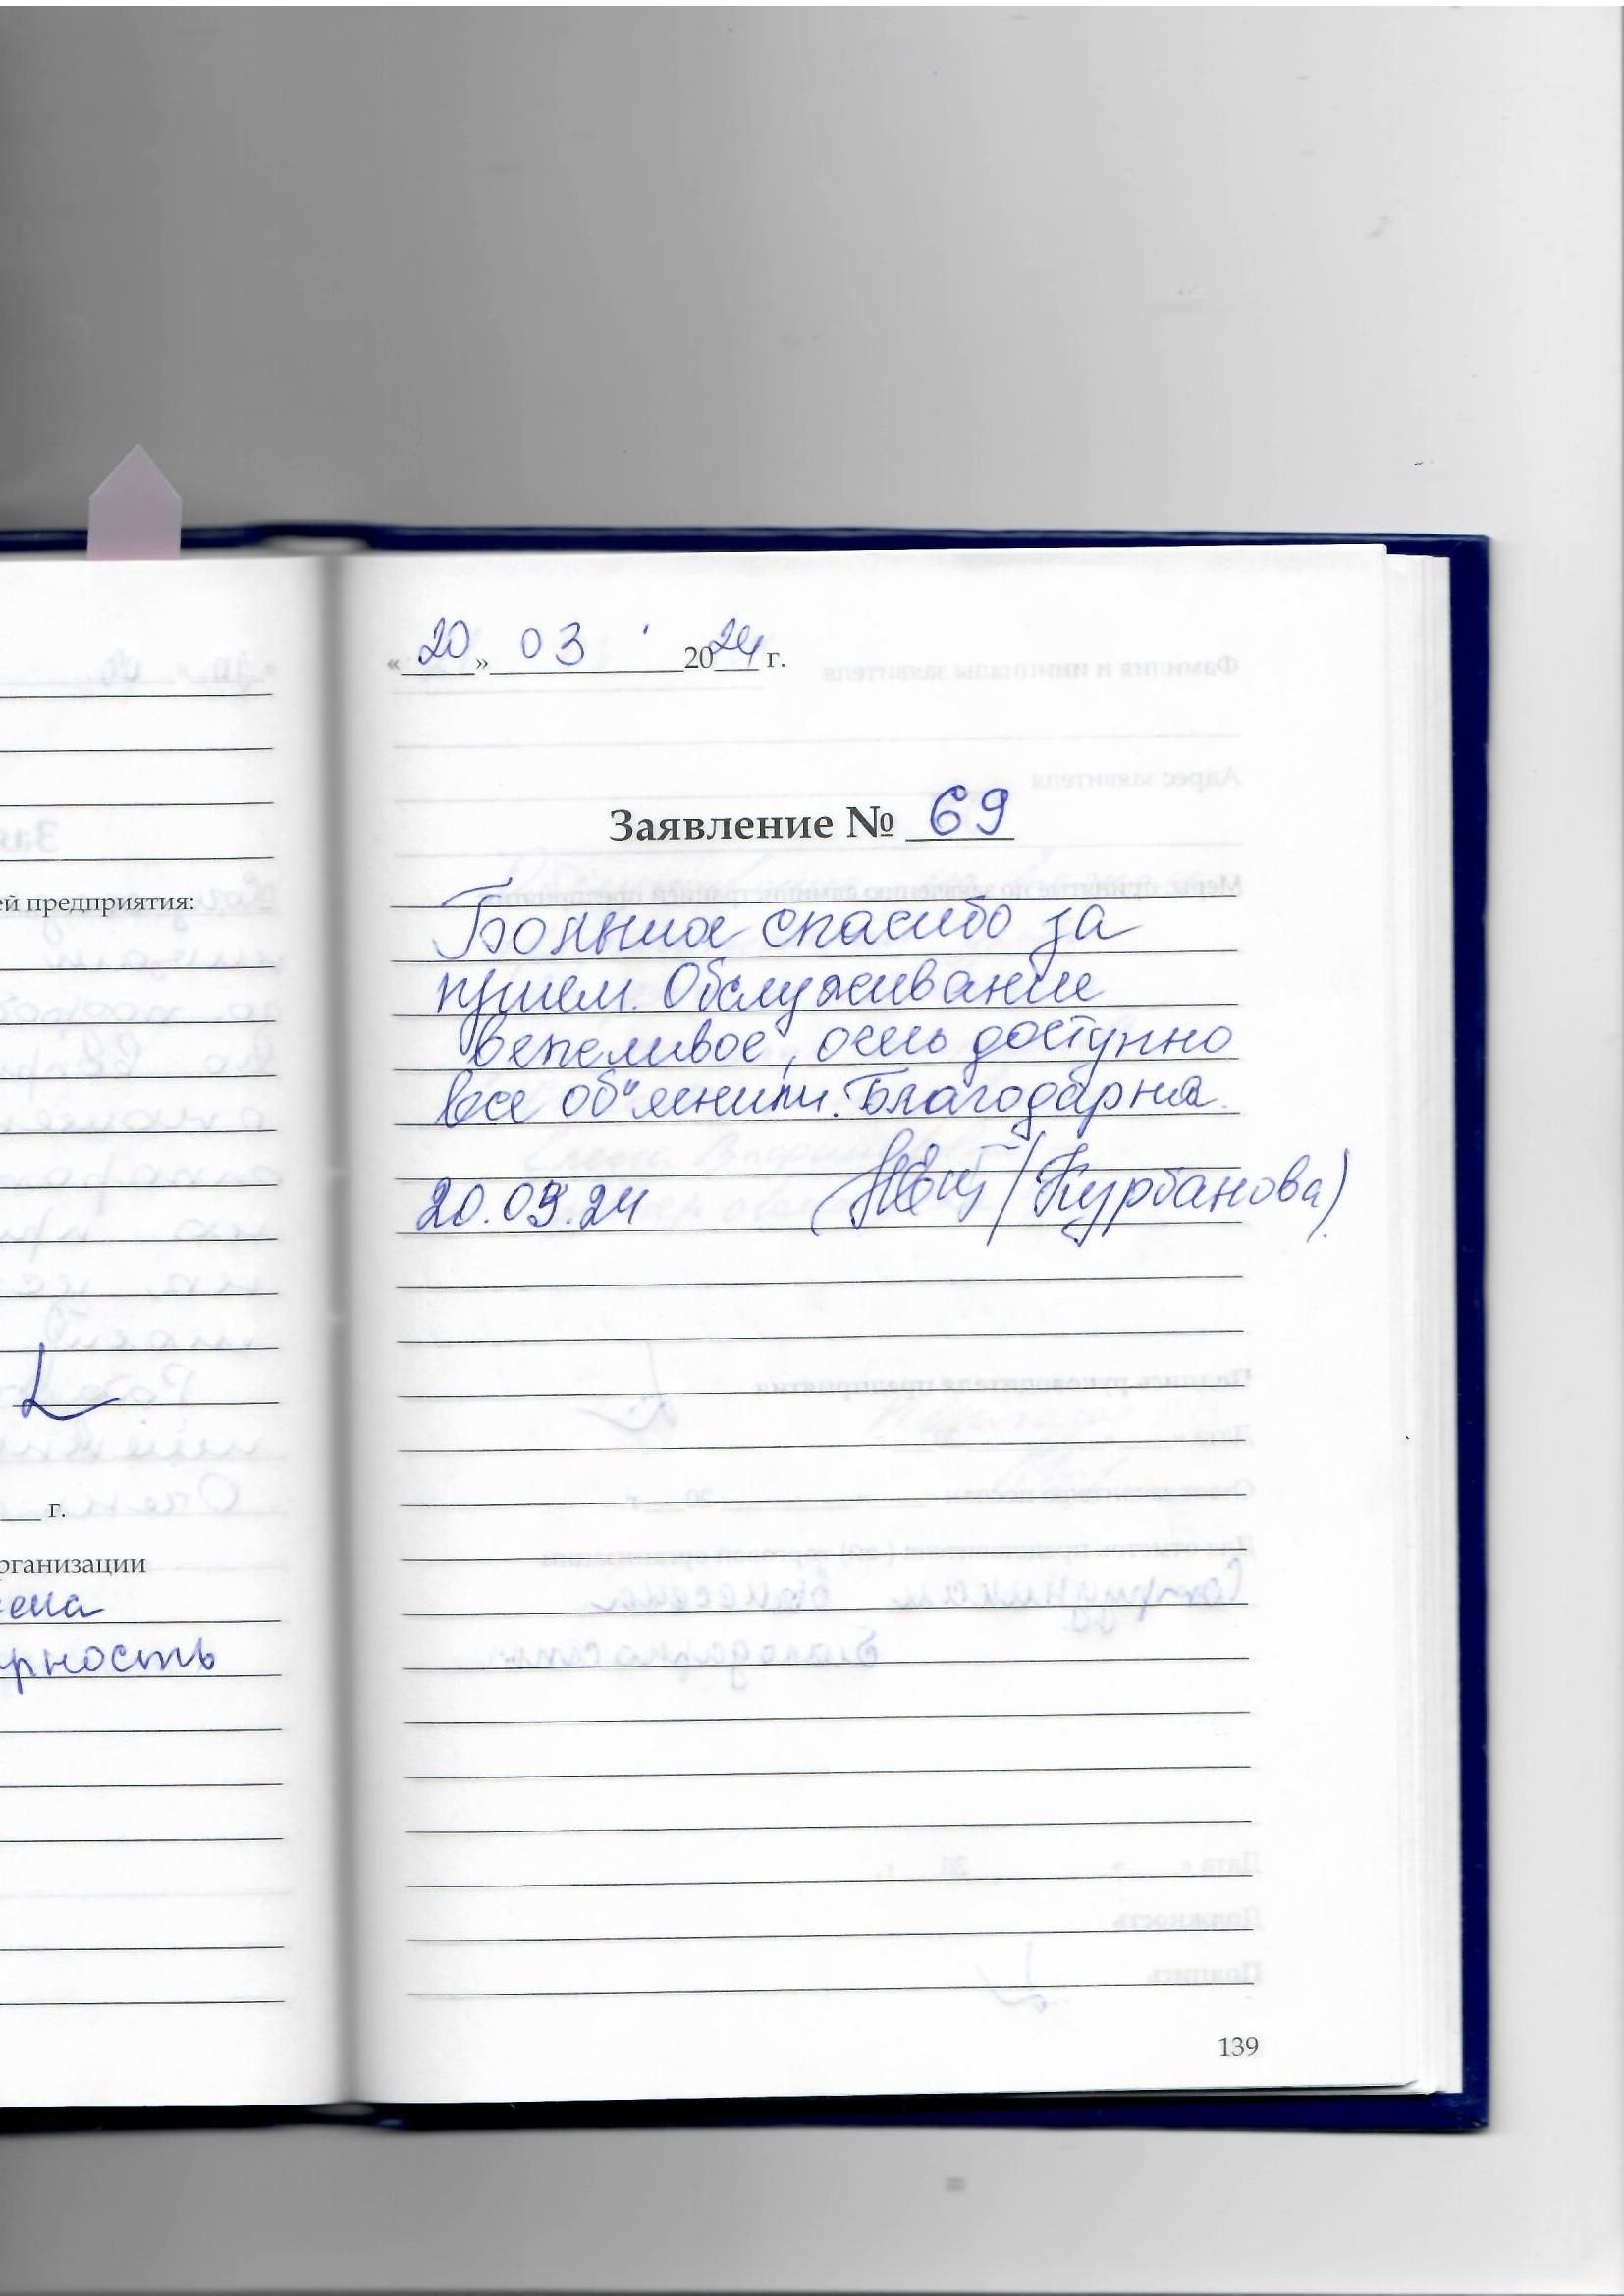 ей предприятия:
г.
рганизации
ена
рность
« 20 » 03 2024 г.
Заявление № 69
Большое спасибо за
прием. Обслуживание
вежливое, очень доступно
все об"яснили. Благодарна.
20.03.24 (Курбанова)
139